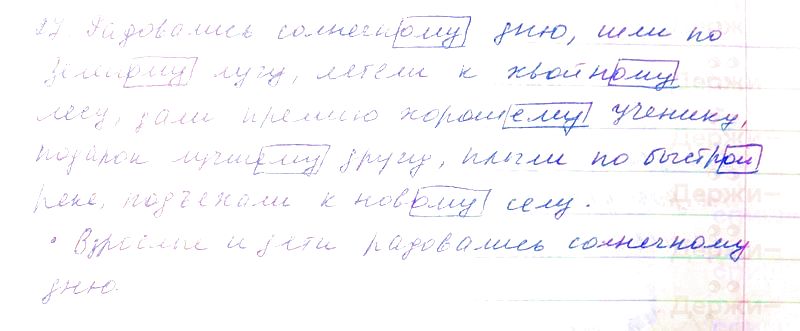 27. Радовались солнечному дню, шли по
зелёному лугу, летели к хвойному
лесу, дали премию хорошему ученику,
подарок лучшему другу, плыли по быстрой
реке, подъехали к новому селу.
• Взрослые и дети радовались солнечному
дню.
Держи-
Держи-
Держи-